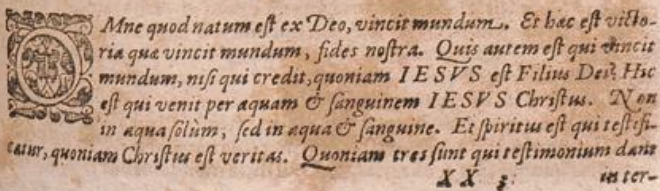 OMne quod natum est ex Deo, vincit mundum. Et hæc est victo-
ria quæ vincit mundum, fides nostra. Quis autem est qui vincit
mundum, nisi qui credit, quoniam IESVS est Filius Dei? Hic
est qui venit per aquam & sanguinem IESVS Christus. Non
in aqua solùm, sed in aqua & sanguine. Et spiritus est qui testifi-
catur, quoniam Christus est veritas. Quoniam tres sunt qui testimonium dant
XX 3 in ter-